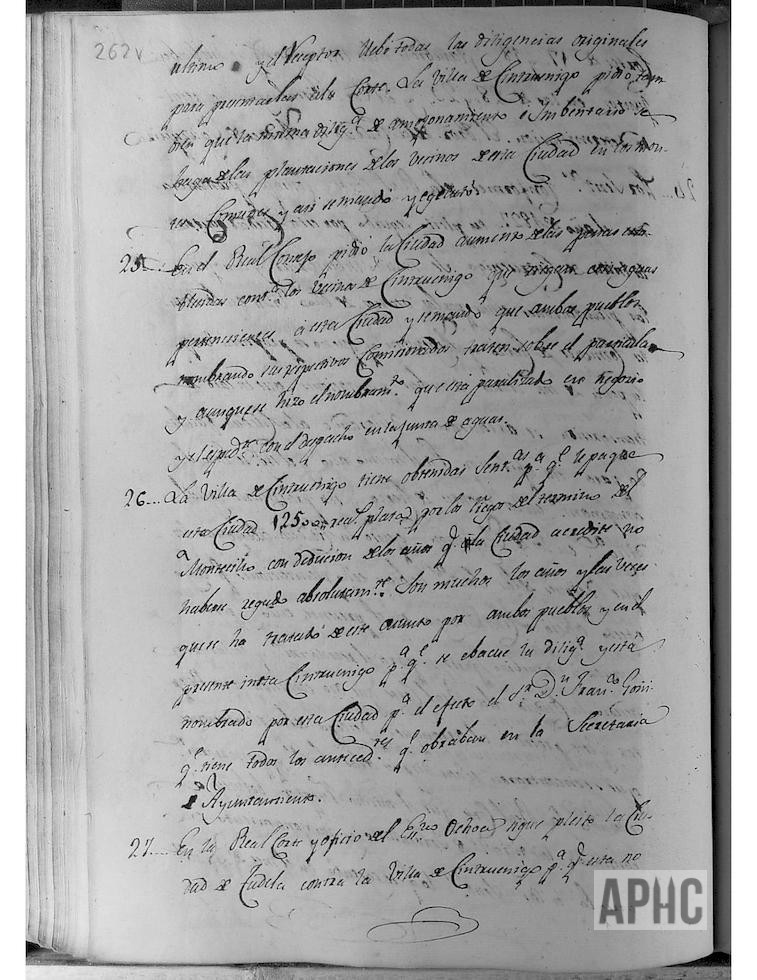 262v
ultimo y el Receptor llebe todas las diligencias originales
para presentarlas a la Corte. La Villa de Cintruenigo pidió tam
bien que la misma dilig.ª de amojonamento e Imbentario se
haga de las plantaciones de los vecinos de esta Ciudad en los Mon-
tes Comunes y asi se mandó y egecutó.
25.... En el Real Consejo pidió la Ciudad aumento de las penas esta-
blecidas cont.ª los vecinos de Cintruenigo que riegan con aguas
pertenecientes a esta Ciudad y se mandó que ambos pueblos
nombrando sus respectivos Comisionados traten sobre el particular
y aunque se hizo el nombram.to que está paralizado ese negocio
y el esped.te con el despacho en la junta de aguas.
26.... La Villa de Cintruenigo tiene obtenidas Sent.as p.ª q.e le pague
esta Ciudad 125 real.s plata por los riegos del termino del
Montecillo con deducion de los años q.e la Ciudad acredite no
haberse regado absolutam.te Son muchos los años y las veces
que se ha tratado de este asunto por ambos pueblos y en el
presente insta Cintruenigo p.ª q.e se ebacue la dilig.ª y está
nombrado por esta Ciudad p.ª el efecto el S.r D.n Fran.co Goñi
q.e tiene todos los anteced.tes q.e obraban en la Secretaria
Ayuntamiento.
27.... En la Real Corte y oficio del Ess.no Ochoa sigue pleito la Ciu-
dad de Tudela contra la Villa de Cintruenigo p.ª q.e esta no
APHC